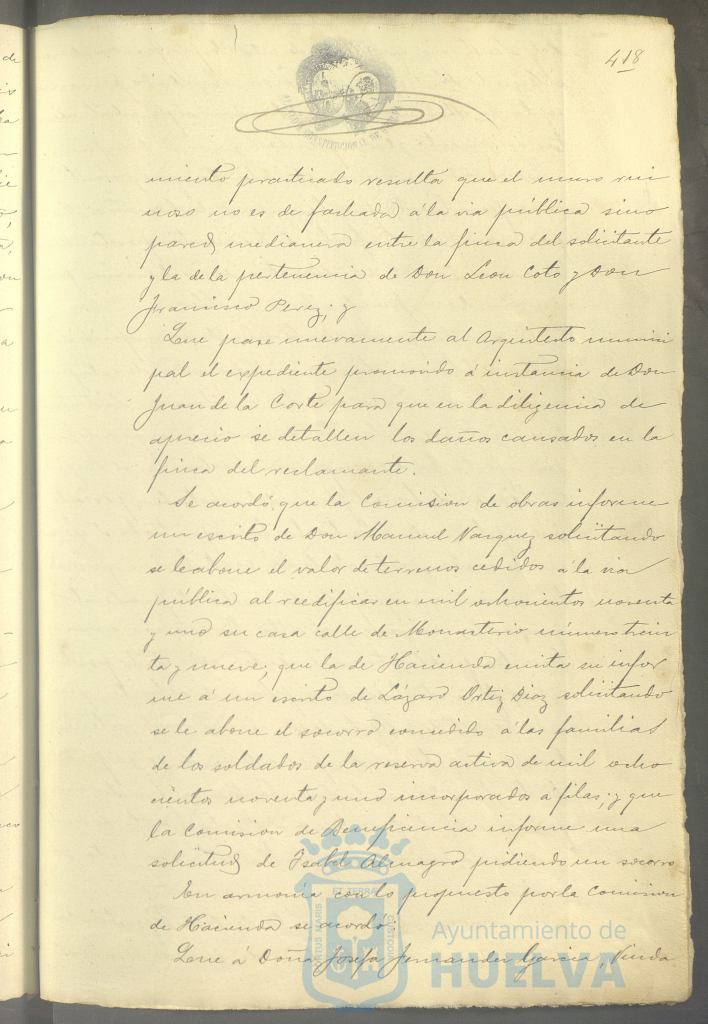 418
miento practicado resulta que el muro rui
noso no es de fachada á la via pública sino
pared medianera entre la finca del solicitante
y la de la pertenencia de Don Leon Coto y Don
Francisco Perez; y
Que pase nuevamente al Arquitecto munici
pal el expediente promovido á instancia de Don
Juan de la Corte para que en la diligencia de
aprecio se detallen los daños causados en la
finca del reclamante.
Se acordó que la Comision de obras informe
un escrito de Don Manuel Vazquez solicitando
se le abone el valor de terrenos cedidos á la via
pública al reedificar en mil ochocientos noventa
y uno su casa calle de Monasterio número trein
ta y nueve; que la de Hacienda emita su infor
me á un escrito de Lázaro Ortiz Diaz solicitando
se le abone el socorro concedido á las familias
de los soldados de la reserva activa de mil ocho
cientos noventa y uno incorporados á filas; y que
la Comision de Beneficencia informe una
solicitud de Isabel Almagro pidiendo un socorro
En armonía con lo propuesto por la Comision
de Hacienda se acordó
Que á Doña Josefa Fernandez Garcia, Viuda
Ayuntamiento de
HUELVA